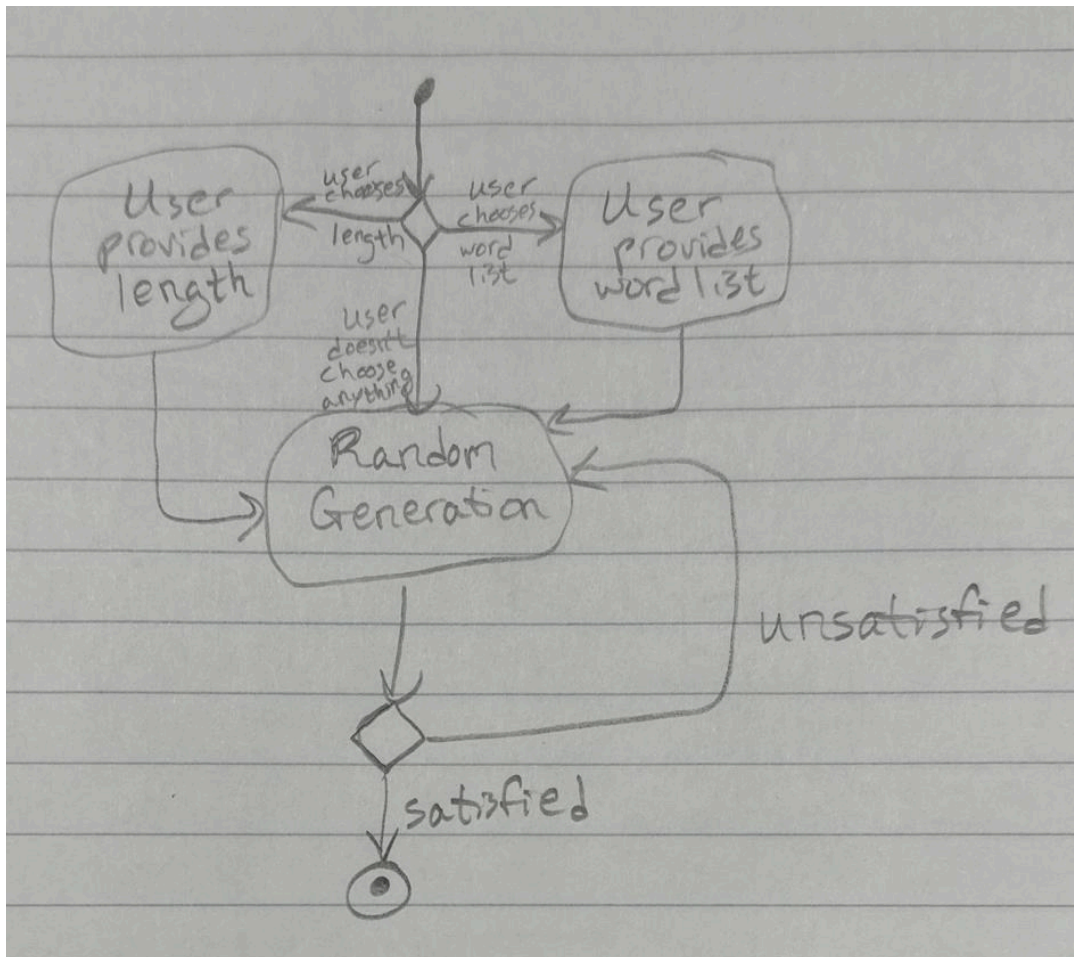 User
provides
length
user
chooses
length
user
chooses
word
list
User
provides
word list
user
doesn't
choose
anything
Random
Generation
unsatisfied
satisfied